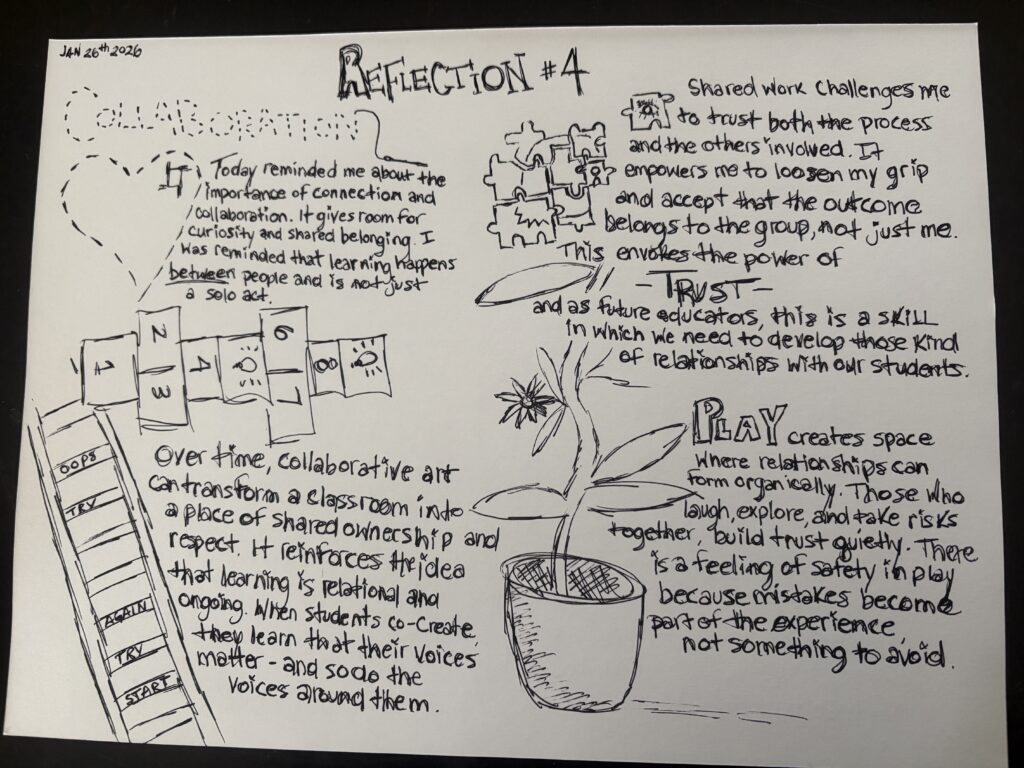 JAN 26th 2026
REFLECTION #4
COLLABORATION
Today reminded me about the
importance of connection and
collaboration. It gives room for
curiosity and shared belonging. I
was reminded that learning happens
between people and is not just
a solo act.
1
2
3
4
6
7
8
OOPS
TRY
AGAIN
TRY
START
Over time, collaborative art
can transform a classroom into
a place of shared ownership and
respect. It reinforces the idea
that learning is relational and
ongoing. When students co-create,
they learn that their voices
matter - and so do the
voices around them.
Shared work challenges me
to trust both the process
and the others involved. It
empowers me to loosen my grip
and accept that the outcome
belongs to the group, not just me.
This envokes the power of
- TRUST -
and as future educators, this is a skill
in which we need to develop those kind
of relationships with our students.
PLAY creates space
where relationships can
form organically. Those who
laugh, explore, and take risks
together, build trust quietly. There
is a feeling of safety in play
because mistakes become
part of the experience,
not something to avoid.